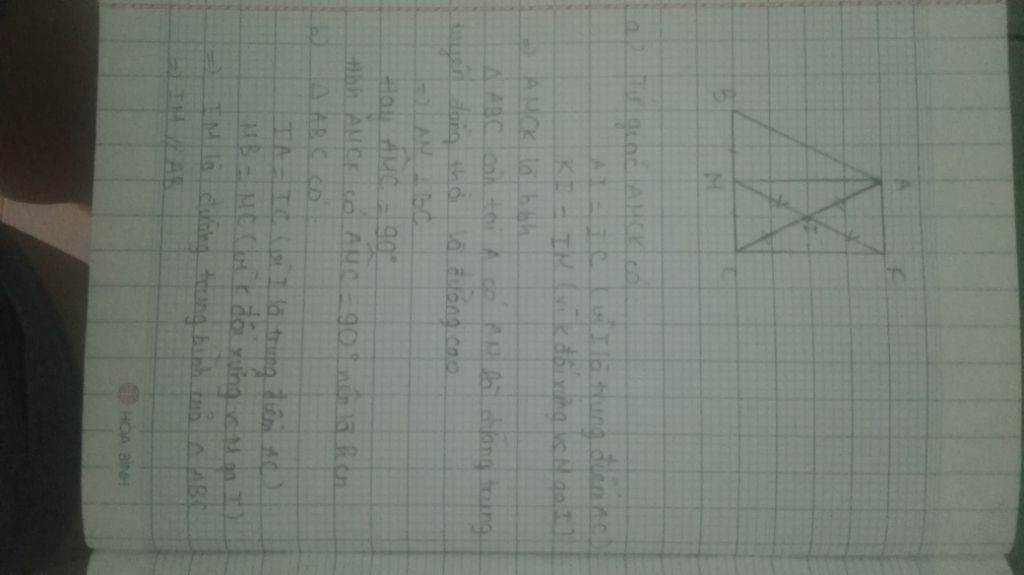 A K
I
B M C
a) Tứ giác AMCK có
AI = IC (vì I là trung điểm AC)
KI = IM (vì K đối xứng vs M qua I)
=> AMCK là hbh
Δ ABC cân tại A có AM là đường trung
tuyến đồng thời là đường cao
=> AM ⊥ BC
Hay AMC = 90°
Hbh AMCK có AMC = 90° nên là hcn
b) Δ ABC có:
IA = IC (vì I là trung điểm AC)
MB = MC (vì đối xứng vs M qua I)
=> IM là đường trung bình của Δ ABC
=> IM // AB
HÒA BÌNH